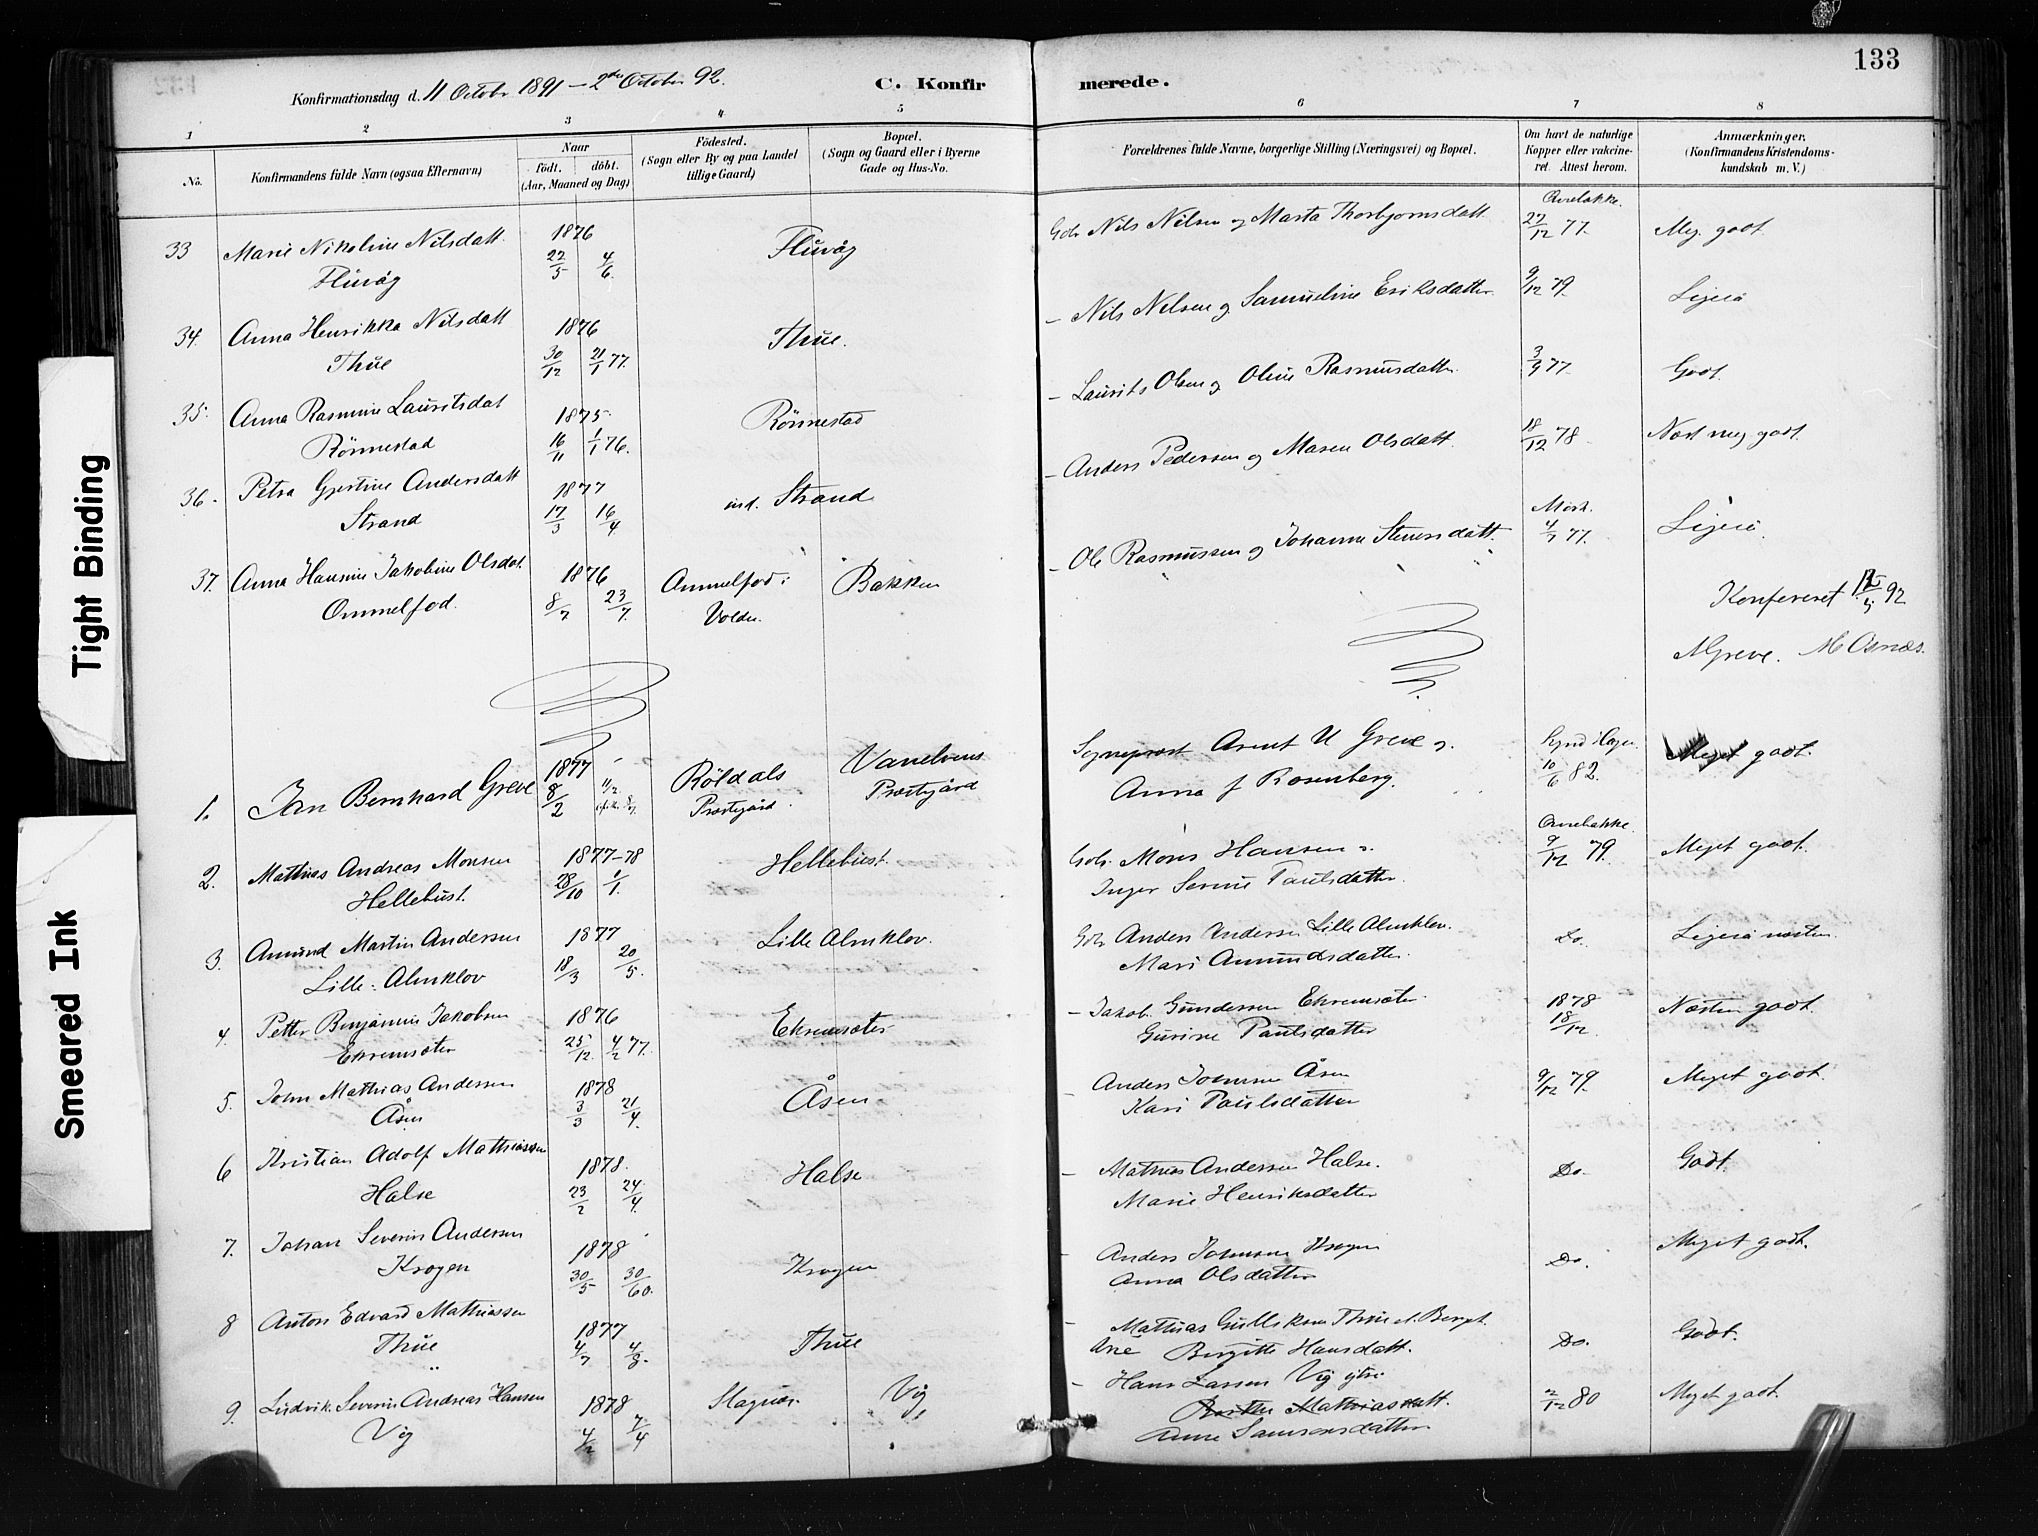 133
Konfirmationsdag d. 11 October 1891 – 2den October 92.
C. Konfirmerede.
1 2 3 4 5 6 7 8
No.
Konfirmandens fulde Navn (ogsaa Efternavn)
Naar
Födt. döbt.
(Aar, Maaned og Dag)
Födested.
(Sogn eller By og paa Landet
tillige Gaard)
Bopæl.
(Sogn og Gaard eller i Byerne
Gade og Hus-No.
Forældrenes fulde Navne, borgerlige Stilling (Næringsvei) og Bopæl.
Om havt de naturlige
Kopper eller vakcine-
ret. Attest herom.
Anmærkninger.
(Konfirmandens Kristendoms-
kundskab m. V.)
33 Marie Nikoline Nilsdatt. 1876 Fluvåg Gdr Nils Nilsen og Marta Thorbjornsdatt 27/12 77. Meg. godt.
Fluvåg 22/5 4/6
34. Anna Henrikka Nilsdatt 1876 Thue. – Nils Nilsen og Samueline Eriksdatter. 9/12 79. Ligeså
Thue 30/12 21/1 77.
35. Anna Rasmine Lauritsdat 1875 Rönnestad – Laurits Olsen og Oline Rasmusdatter. 3/9 77. Godt.
Rönnestad 16/11 1/1 76.
36. Petra Gjertine Andersdatt 1877 ind. Strand – Anders Pedersen og Maren Olsdatt. 18/12 78 Næst meg godt.
Strand 17/3 16/4
37. Anna Hansine Jakobine Olsdat. 1876 Ommelfod i Bakken – Ole Rasmussen og Johanne Stenersdatt. 4/7 77. Ligeså.
Ommelfod. 8/7 23/7. Volden.
Konfereret 92
AGreve. M Osnæs.
1. Jens Bernhard Greve 1877 8/2 Röldals Vanelvens Sogneprest Arent U Greve og 10/6 82. Meget godt.
Præstegård. Præstegård Anna f Rosenberg.
2. Mathias Andreas Monsen 1877–78 Hellebust. Gdr. Mons Hansen og 9/12 79. Meget godt.
Hellebust. 28/10 1/1. Inger Serine Paulsdatter.
3. Amund Martin Andersen 1877 Lille Almklov. Gdr Anders Andersen Lille Almklov. Do. Ligeså næsten.
Lille-Almklov 18/3 20/5. Mari Amundsdatter.
4. Petter Benjamin Jakobsen 1876 Ekremsæter – Jakob Gundersen Ekremsæter. 1878 Næsten godt.
Ekremsæter 25/12 4/2 77. Gurine Paulsdatter 18/12.
5. John Mathias Andersen 1878 Åsen – Anders Johnsen Åsen 9/12 79. Meget godt.
Åsen 3/3 21/4. Kari Paulsdatter
6 Kristian Adolf Mathiassen 1878. Halse – Mathias Andersen Halse. Do. Godt.
Halse 23/2 24/4. Marie Henriksdatter
7. Johan Severin Andersen 1878 Krogen – Anders Johnsen Krogen Do. Meget godt.
Krogen 30/5 30/60. Anna Olsdatter
8 Anton Edvard Mathiassen 1877 Thue – Mathias Gulliksen Thue Do. Godt.
Thue 4/7 4/8. Ane Birgitte Hansdatt.
9. Ludvik Severin Andreas Hansen 1878 Vig – Hans Larsen Vig ytre 2/12 80 Meget godt.
Vig 4/2 7/4 Mathiasdatt.
Anne Samsonsdatter
Tight Binding
Smeared Ink